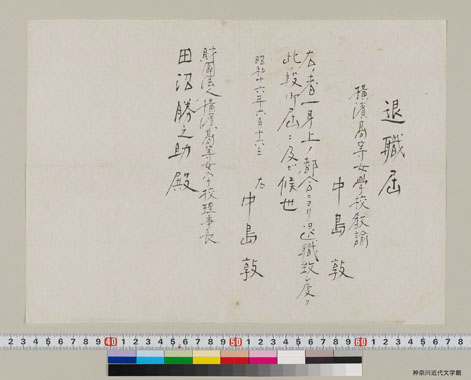 退職届
横濱髙等女學校教諭
中島敦
右ノ者一身上ノ都合ニヨリ退職致シ度ク
此段御届ニ及ビ候也
昭和十六年六月十六日
右 中島敦
財團法人横濱髙等女学校理事長
田沼勝之助殿
2 3 4 5 6 7 8 9 40 1 2 3 4 5 6 7 8 9 50 1 2 3 4 5 6 7 8 9 60 1 2 3 4 5 6 7 8
神奈川近代文学館